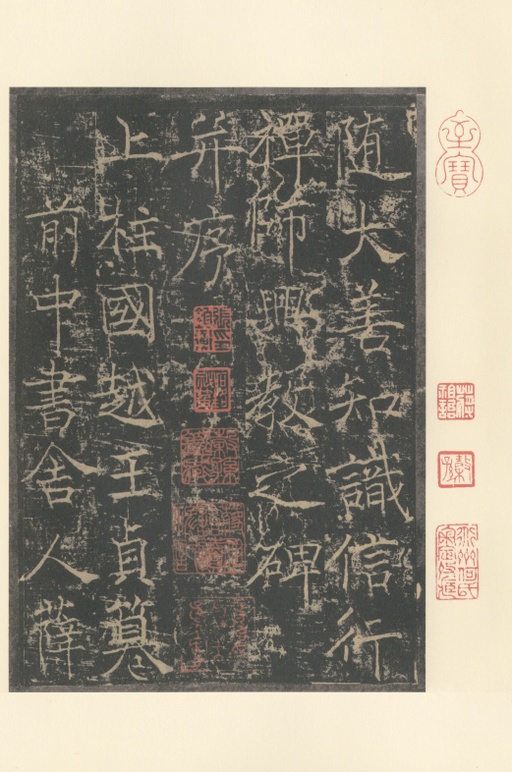 随大善知識信行
禪師興教之碑
并序
上柱國越王貞篹
前中書舍人薛
至寶